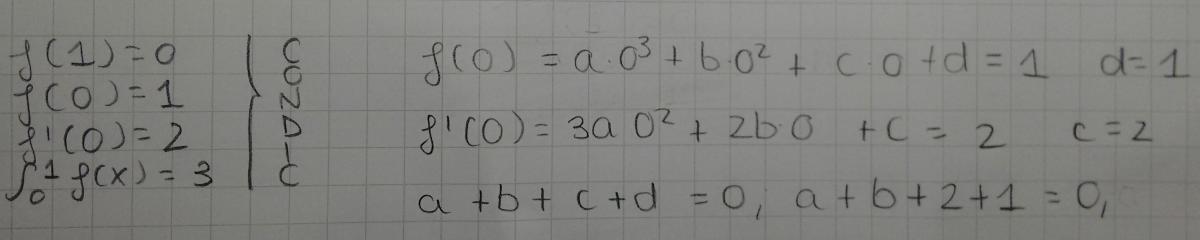 f(1)=0
f(0)=1
f'(0)=2
∫₀¹ f(x)=3
CONDIC
f(0) = a·0³ + b·0² + c·0 + d = 1 d=1
f'(0) = 3a 0² + 2b·0 + c = 2 c=2
a + b + c + d = 0, a + b + 2 + 1 = 0,